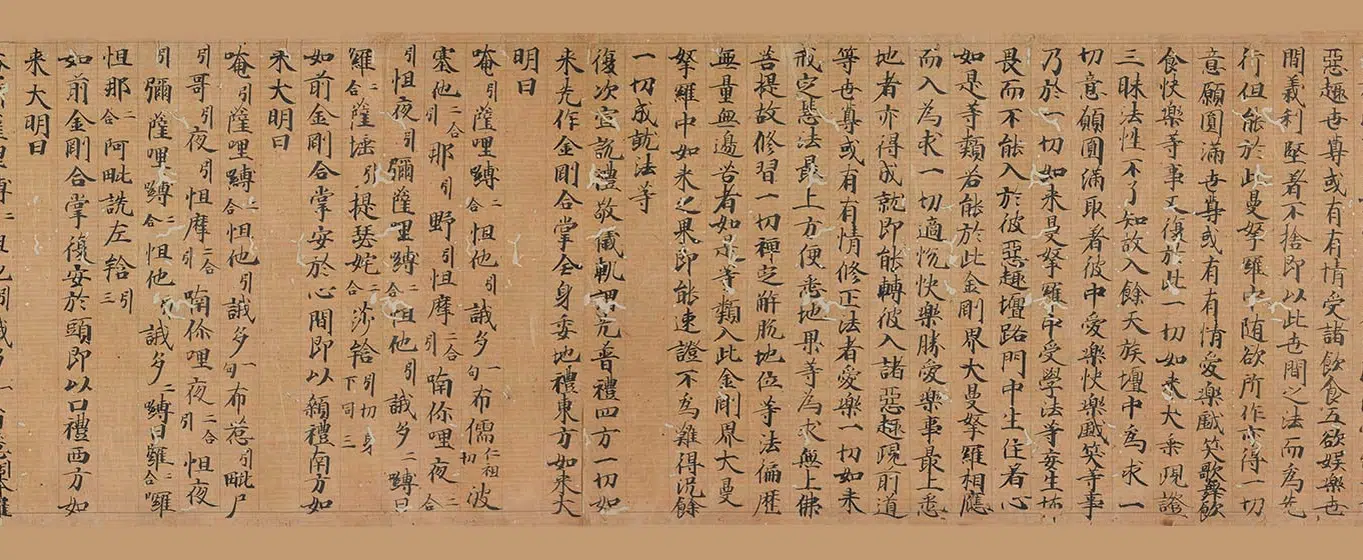 惡趣世尊或有有情受諸飲食五欲娛樂世
間義利堅著不捨即以此世間之法而為先
行但能於此曼拏羅中随欲所作亦得一切
意願圓滿世尊或有有情愛樂戲笑歌舞飲
食快樂等事又復於此一切如来大乘現證
三昧法性不了知故入餘天族壇中為求一
切意願圓滿取著彼中愛樂快樂戲笑等事
乃於一切如来曼拏羅中受學法等妄生怖
畏而不能入於彼惡趣壇路門中生住著心
如是等類若能於此金剛界大曼拏羅相應
而入為求一切適悅快樂勝愛樂事最上悉
地者亦得成就即能轉彼入諸惡趣現前道
等世尊或有有情修正法者愛樂一切如来
戒定慧法最上方便悉地果等為求無上佛
菩提故修習一切禪定解脫地位等法徧歷
無量無邊苦者如是等類入此金剛界大曼
拏羅中如来之果即能速證不為難得況餘
一切成就法等
復次宣說禮敬儀軌謂先普禮四方一切如
来先作金剛合掌全身委地禮東方如来大
明曰
唵引薩哩嚩二合怛他引誐多一句布儒仁祖切波
塞他二合那引野引怛摩二合引喃你哩夜二合
引怛夜引彌薩哩嚩二合怛他引誐多二嚩日
羅二合薩埵引提瑟姹二合沙給引切身下同三
如前金剛合掌安於心間即以額禮南方如
来大明曰
唵引薩哩嚩二合怛他引誐多一句布惹引毗尸
引哥引夜引怛摩二合引喃你哩夜二合引怛夜
引彌薩哩嚩二合怛他引誐多二嚩日囉二合囉
怛那二合阿毗詵左給引三
如前金剛合掌復安於頭即以口禮西方如
来大明曰